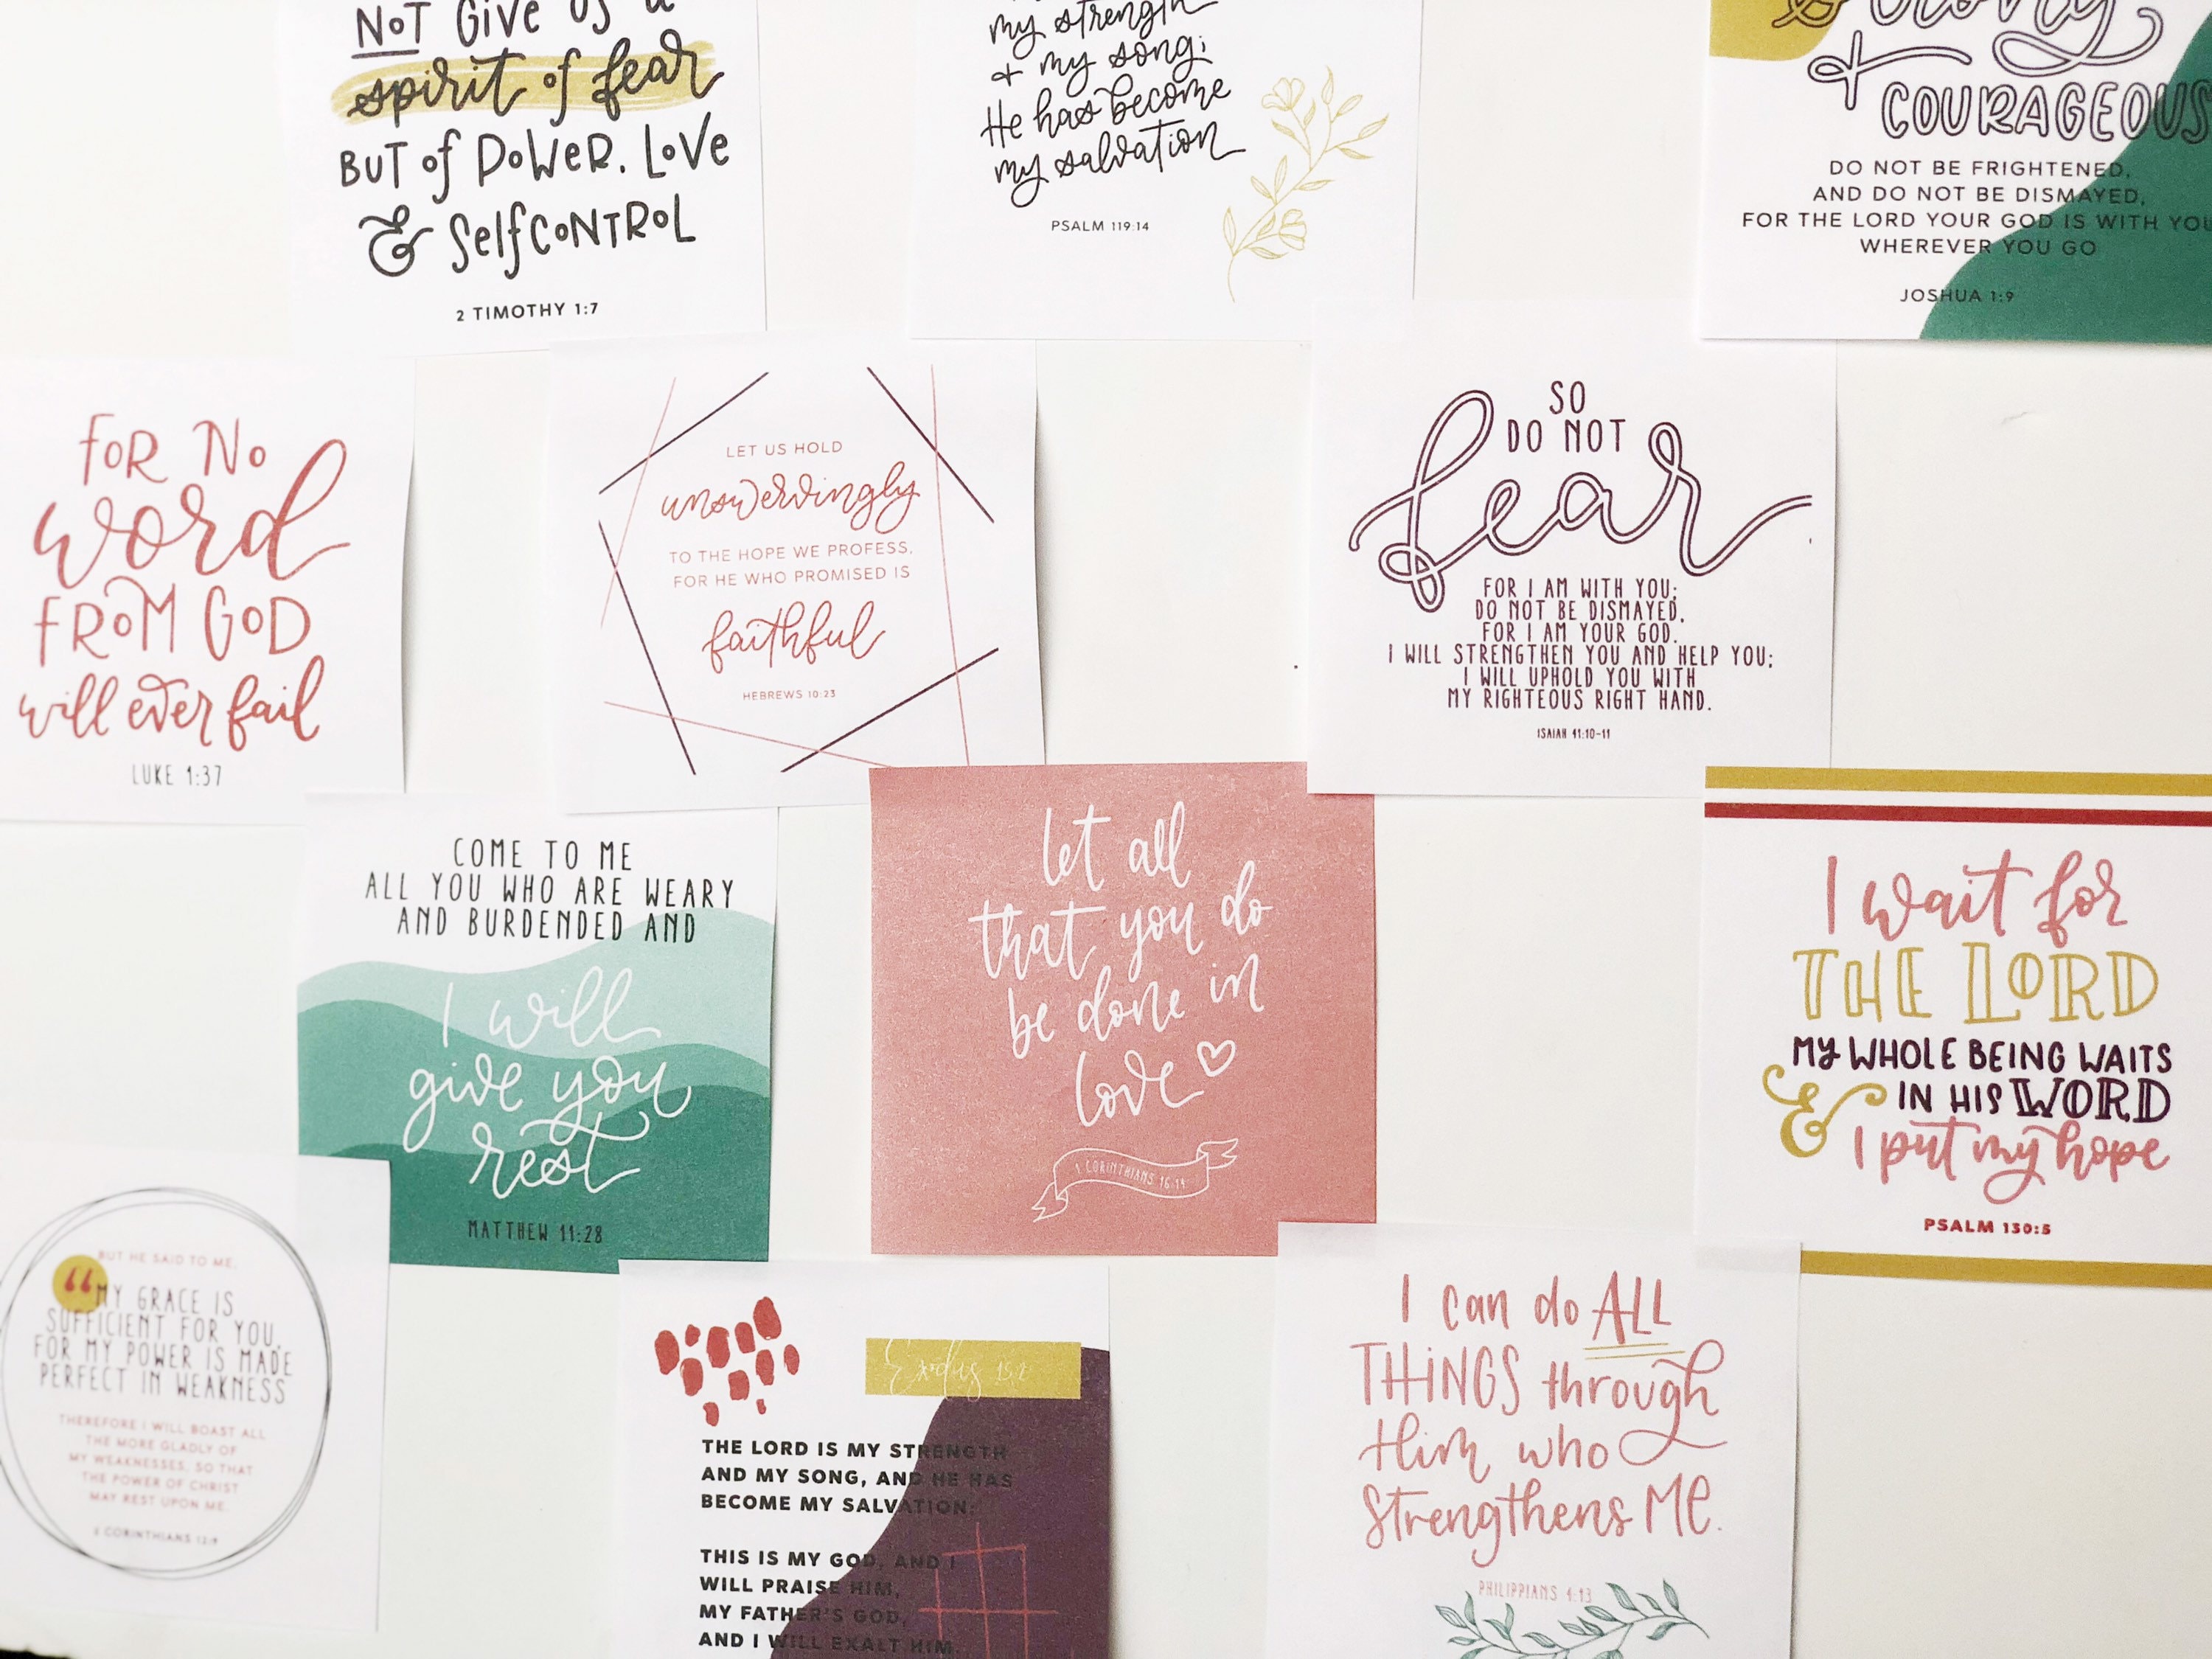 NOT GIVE US a
spirit of fear
BUT of POWER, LOVE
& SelfCONTROL
2 TIMOTHY 1:7
my strength
+ my song;
He has become
my salvation
PSALM 119:14
Strong
+ COURAGEOUS
DO NOT BE FRIGHTENED,
AND DO NOT BE DISMAYED,
FOR THE LORD YOUR GOD IS WITH YOU
WHEREVER YOU GO
JOSHUA 1:9
FOR No
word
FROM GOD
will ever fail
LUKE 1:37
LET US HOLD
unswervingly
TO THE HOPE WE PROFESS,
FOR HE WHO PROMISED IS
faithful
HEBREWS 10:23
SO
DO NOT
fear
FOR I AM WITH YOU;
DO NOT BE DISMAYED,
FOR I AM YOUR GOD.
I WILL STRENGTHEN YOU AND HELP YOU;
I WILL UPHOLD YOU WITH
MY RIGHTEOUS RIGHT HAND.
ISAIAH 41:10-11
COME TO ME
ALL YOU WHO ARE WEARY
AND BURDENDED AND
I will
give you
rest
MATTHEW 11:28
let all
that you do
be done in
love
1 CORINTHIANS 16:14
I wait for
THE LORD
MY WHOLE BEING WAITS
& IN HIS WORD
I put my hope
PSALM 130:5
BUT HE SAID TO ME,
“MY GRACE IS
SUFFICIENT FOR YOU,
FOR MY POWER IS MADE
PERFECT IN WEAKNESS
THEREFORE I WILL BOAST ALL
THE MORE GLADLY OF
MY WEAKNESSES, SO THAT
THE POWER OF CHRIST
MAY REST UPON ME.
2 CORINTHIANS 12:9
Exodus 15:2
THE LORD IS MY STRENGTH
AND MY SONG, AND HE HAS
BECOME MY SALVATION;
THIS IS MY GOD, AND I
WILL PRAISE HIM,
MY FATHER'S GOD,
AND I WILL EXALT HIM.
I can do ALL
THINGS through
Him who
strengthens Me.
PHILIPPIANS 4:13